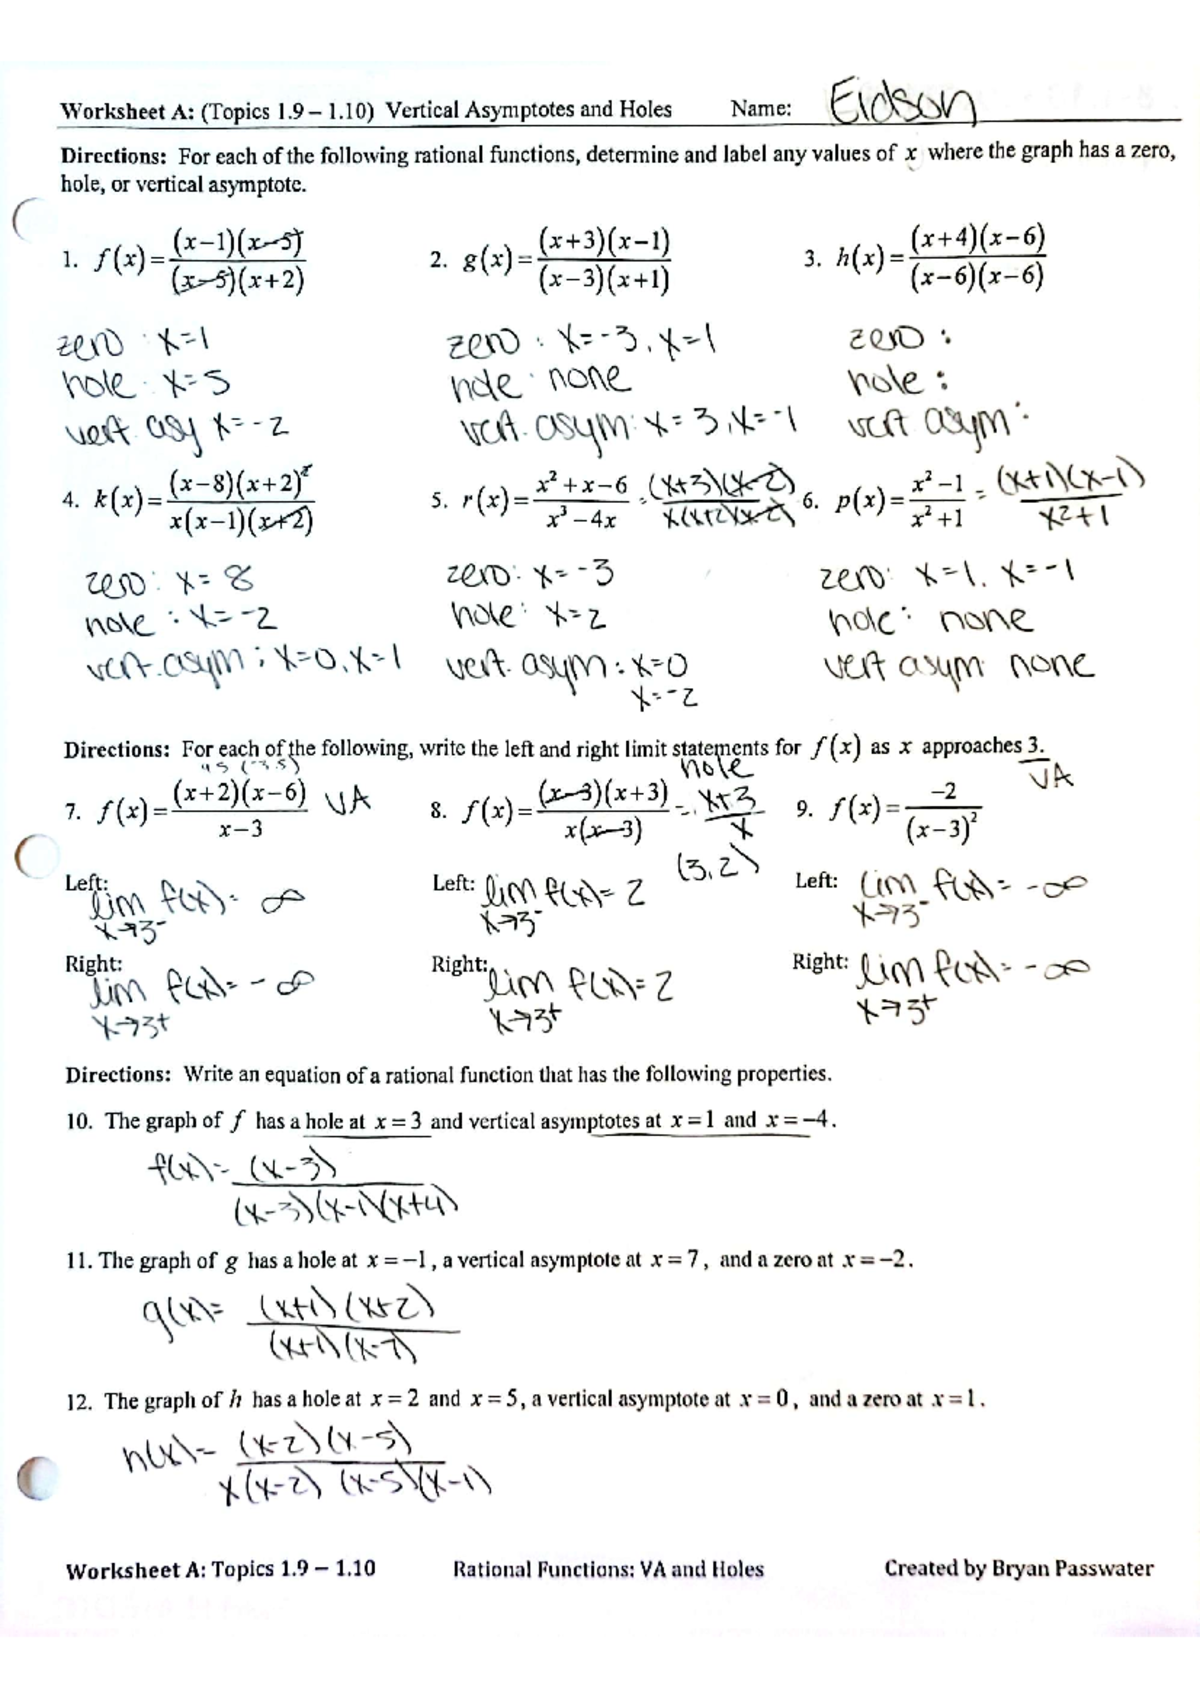 Worksheet A: (Topics 1.9 – 1.10) Vertical Asymptotes and Holes Name: Eidson
Directions: For each of the following rational functions, determine and label any values of x where the graph has a zero,
hole, or vertical asymptote.
1. f(x) = (x−1)(x−5) / (x−5)(x+2) 2. g(x) = (x+3)(x−1) / (x−3)(x+1) 3. h(x) = (x+4)(x−6) / (x−6)(x−6)
zero : x=1 zero : x=-3, x=1 zero :
hole : x=5 hole : none hole :
vert. asy x=-2 vert. asym: x=3, x=-1 vert asym:
4. k(x) = (x−8)(x+2)² / x(x−1)(x+2) 5. r(x) = x²+x−6 / x³−4x = (x+3)(x-2) / x(x+2)(x-2) 6. p(x) = x²−1 / x²+1 = (x+1)(x-1) / x²+1
zero: x=8 zero: x=-3 zero: x=1, x=-1
hole : x=-2 hole: x=2 hole: none
vert. asym: x=0, x=1 vert. asym: x=0 vert asym none
x=-2
Directions: For each of the following, write the left and right limit statements for f(x) as x approaches 3.
hole VA
7. f(x) = (x+2)(x−6) / x−3 VA 8. f(x) = (x−3)(x+3) / x(x−3) = x+3 / x 9. f(x) = −2 / (x−3)²
(3,2)
Left: lim f(x)= ∞ Left: lim f(x)= 2 Left: lim f(x)= -∞
x→3⁻ x→3⁻ x→3⁻
Right: lim f(x)= -∞ Right: lim f(x)= 2 Right: lim f(x)= -∞
x→3⁺ x→3⁺ x→3⁺
Directions: Write an equation of a rational function that has the following properties.
10. The graph of f has a hole at x = 3 and vertical asymptotes at x = 1 and x = −4.
f(x)= (x-3) / (x-3)(x-1)(x+4)
11. The graph of g has a hole at x = −1, a vertical asymptote at x = 7, and a zero at x = −2.
g(x)= (x+1)(x+2) / (x+1)(x-7)
12. The graph of h has a hole at x = 2 and x = 5, a vertical asymptote at x = 0, and a zero at x = 1.
h(x)= (x-2)(x-5) / x(x-2)(x-5)(x-1)
Worksheet A: Topics 1.9 – 1.10 Rational Functions: VA and Holes Created by Bryan Passwater